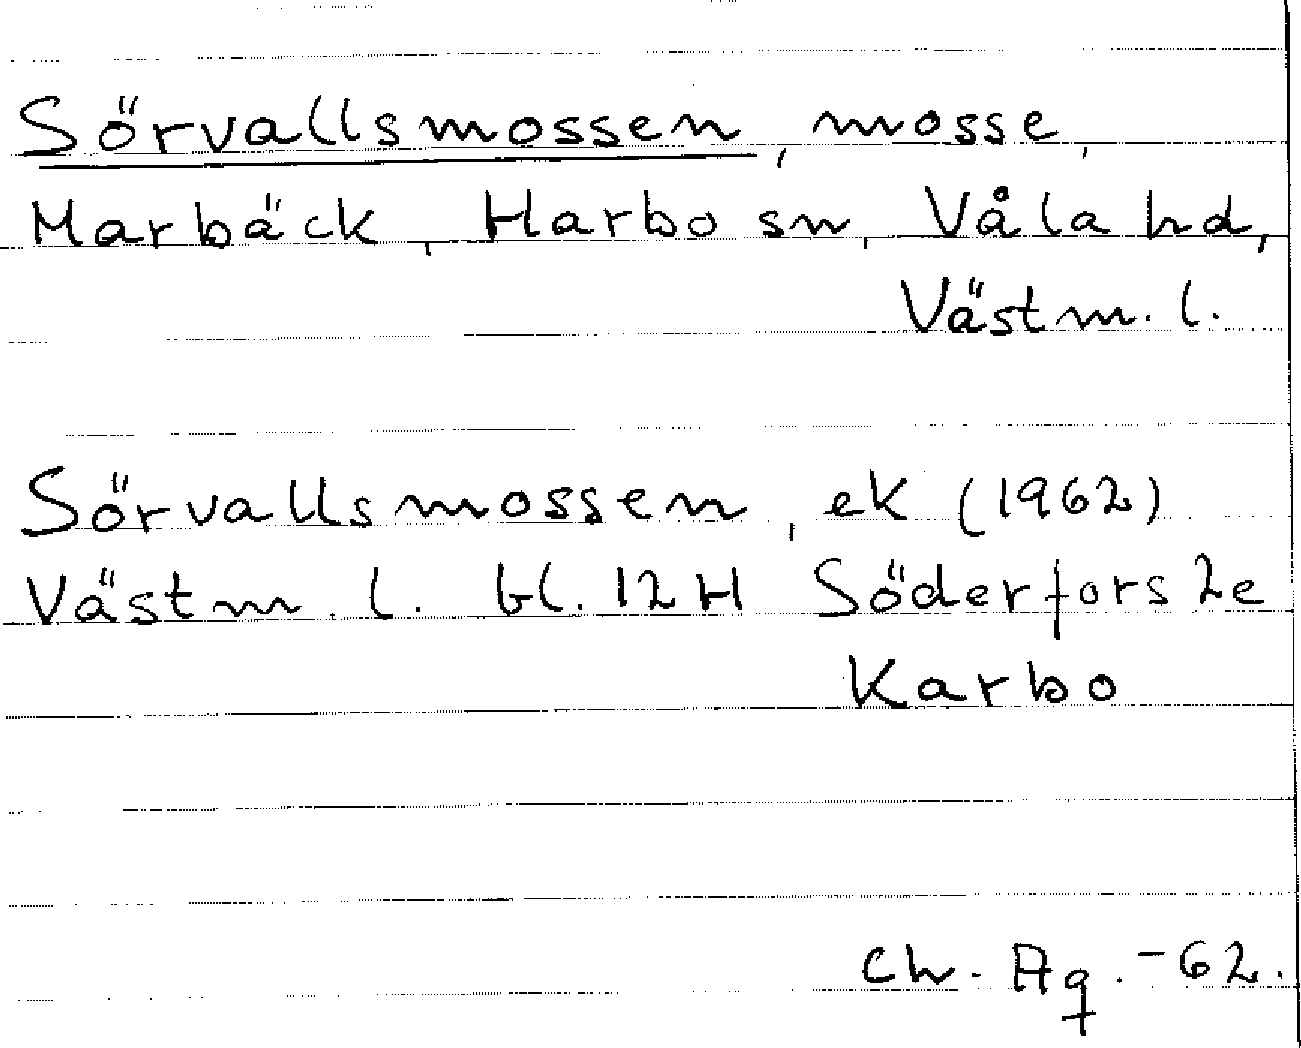 Sörvallsmossen, mosse,
Marbäck, Harbo sn, Våla hd,
Västm. l.
Sörvallsmossen, ek (1962)
Västm. l. bl. 12H Söderfors 2e
Karbo
Ch. Aq. -62.